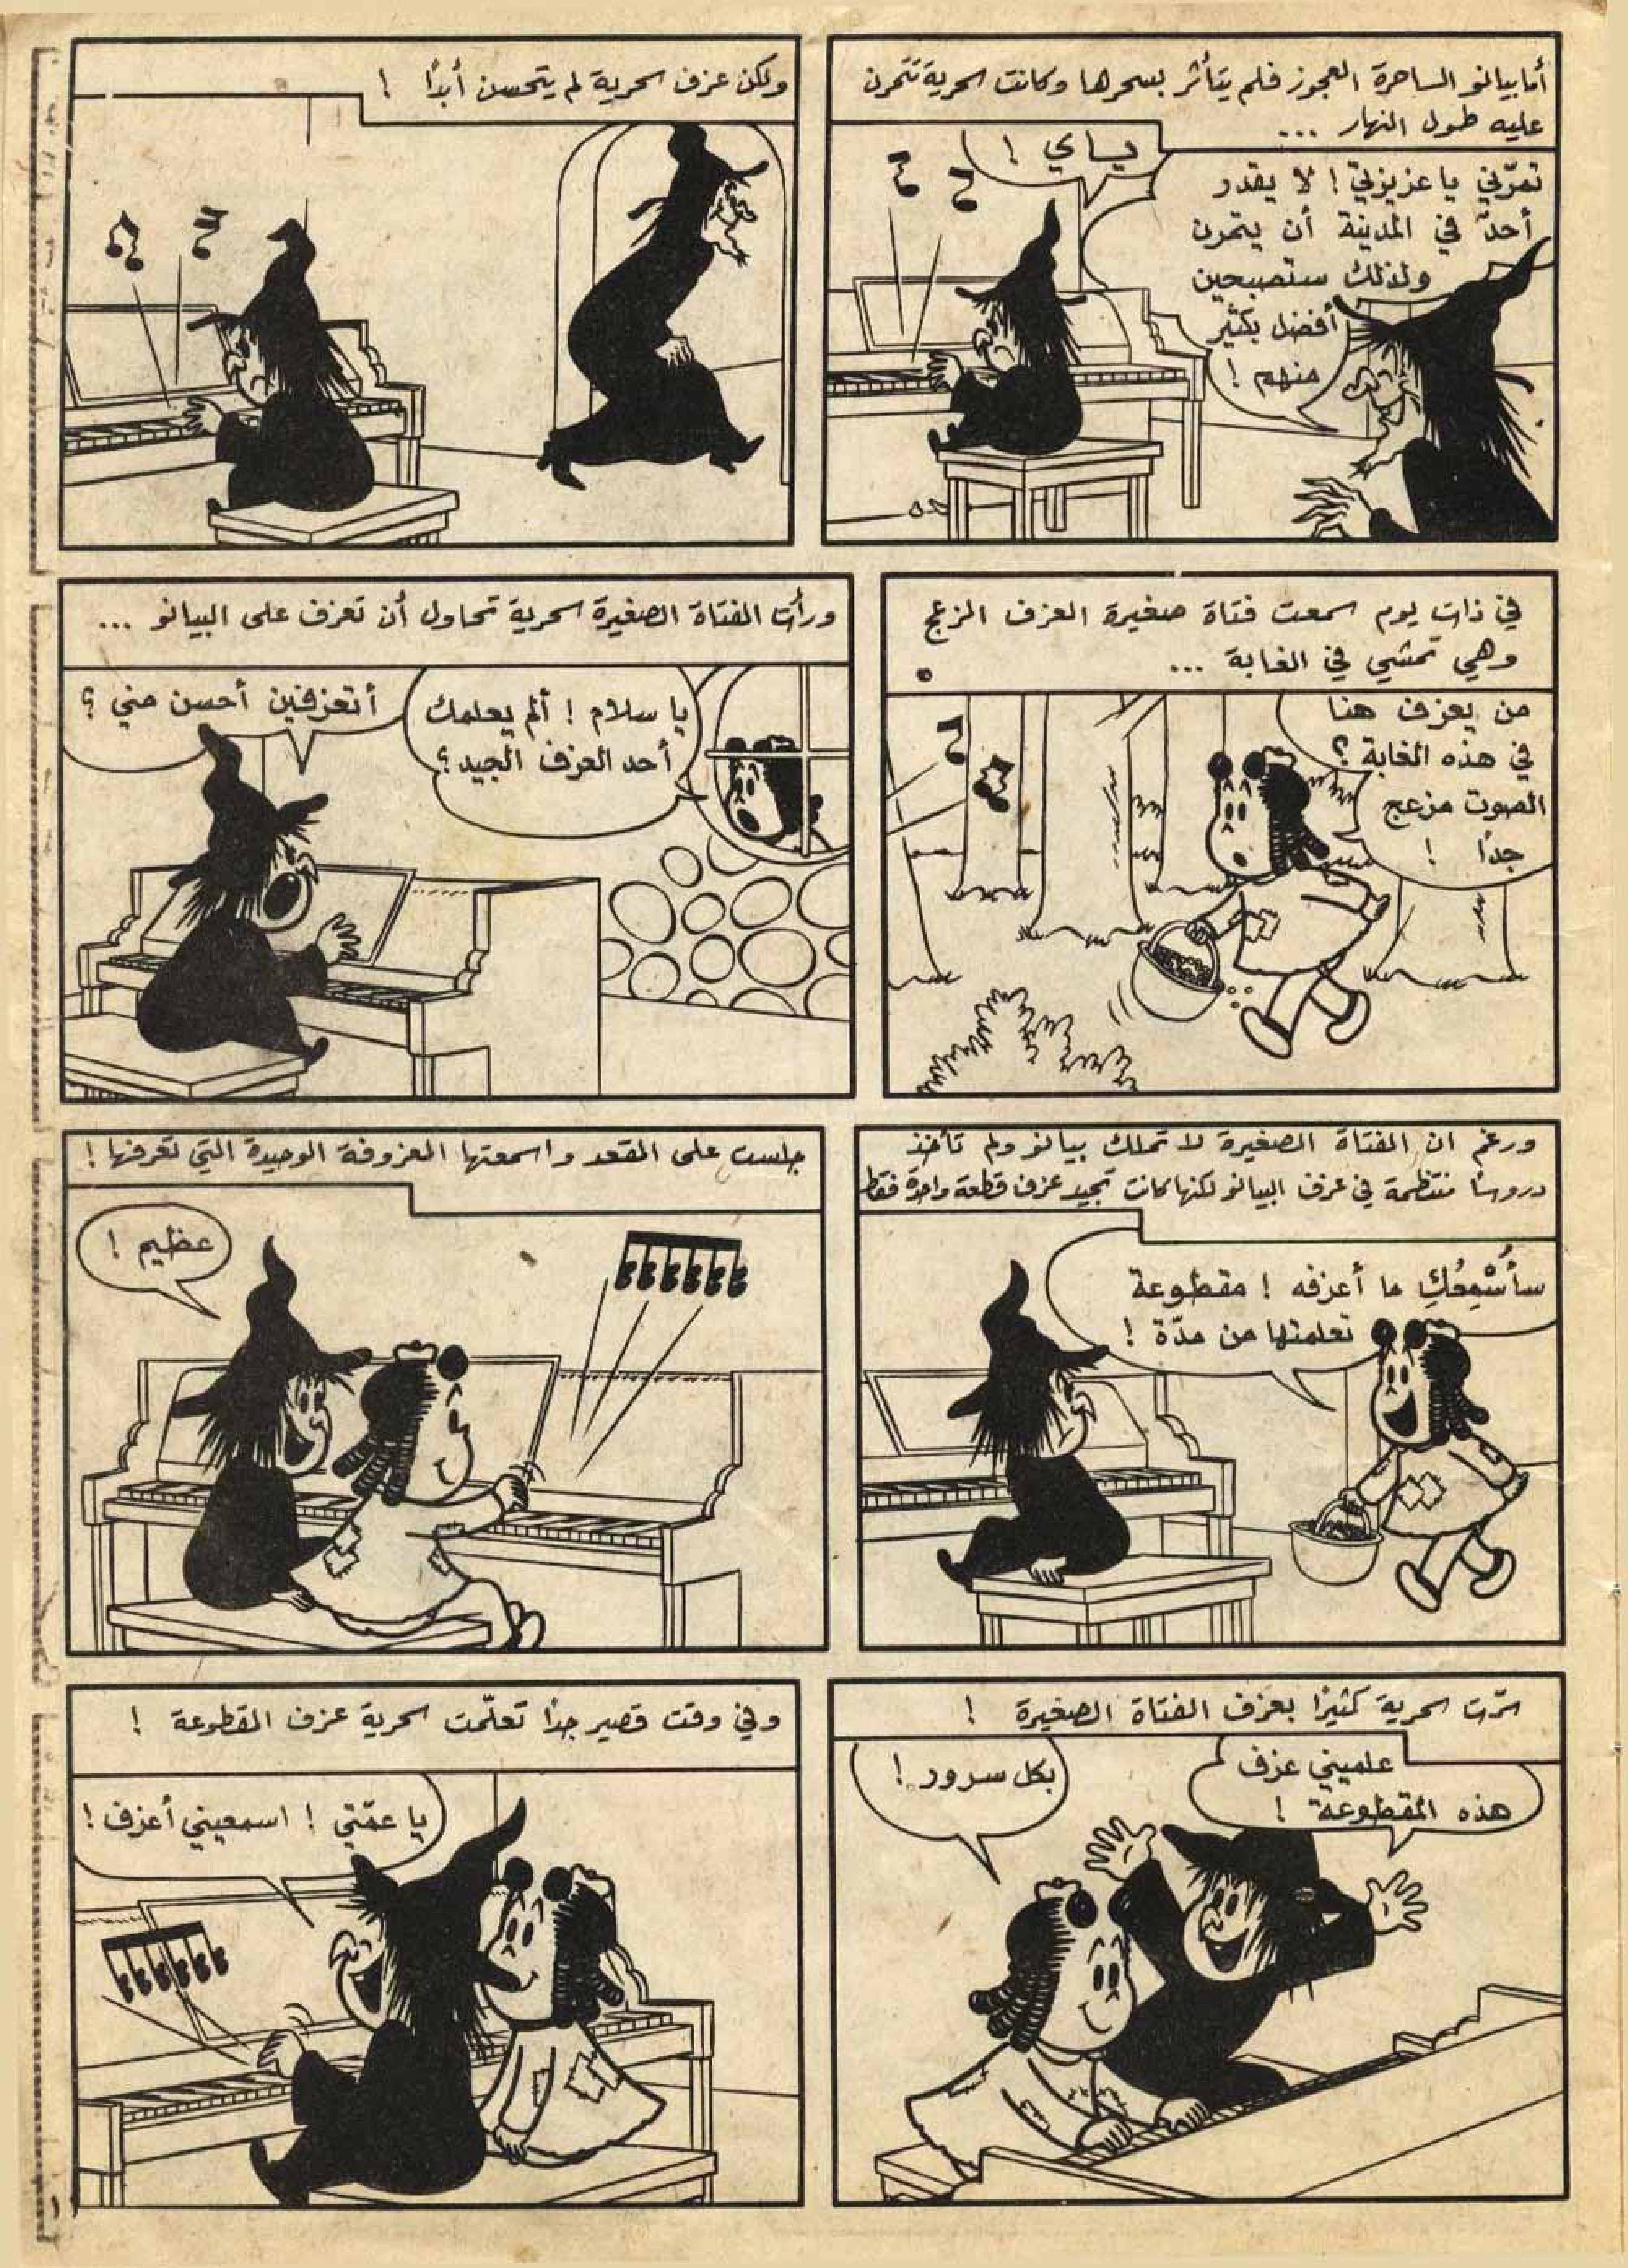 أما بيانو الساحرة العجوز فلم يتأثر بسحرها وكانت سحرية تتمرن
عليه طول النهار ...
تمرّني يا عزيزتي ! لا يقدر
أحدٌ في المدينة أن يتمرن
ولذلك ستصبحين
أفضل بكثير
منهم !
ياي !
ولكن عزف سحرية لم يتحسن أبدًا !
في ذات يوم سمعت فتاة صغيرة العزف المزعج
وهي تمشي في الغابة ...
من يعزف هنا
في هذه الغابة ؟
الصوت مزعج
جدًا !
ورأت الفتاة الصغيرة سحرية تحاول أن تعزف على البيانو ...
يا سلام ! ألم يعلمك
أحد العزف الجيد ؟
أتعزفين أحسن مني ؟
ورغم ان الفتاة الصغيرة لا تملك بيانو ولم تأخذ
دروسًا منتظمة في عزف البيانو لكنها كانت تجيد عزف قطعة واحدة فقط
سأُسْمِعُكِ ما أعزفه ! مقطوعة
تعلمتها من مدّة !
جلست على المقعد واسمعتها المعزوفة الوحيدة التي تعرفها !
عظيم !
سرّت سحرية كثيرًا بعزف الفتاة الصغيرة !
علميني عزف
هذه المقطوعة !
بكل سرور !
وفي وقت قصير جدًا تعلّمت سحرية عزف المقطوعة !
يا عمّتي ! اسمعيني أعزف !